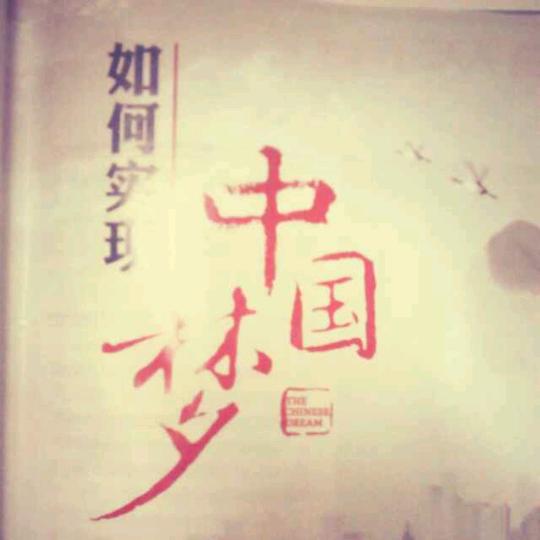 如何实现
中国
梦
THE
CHINESE
DREAM